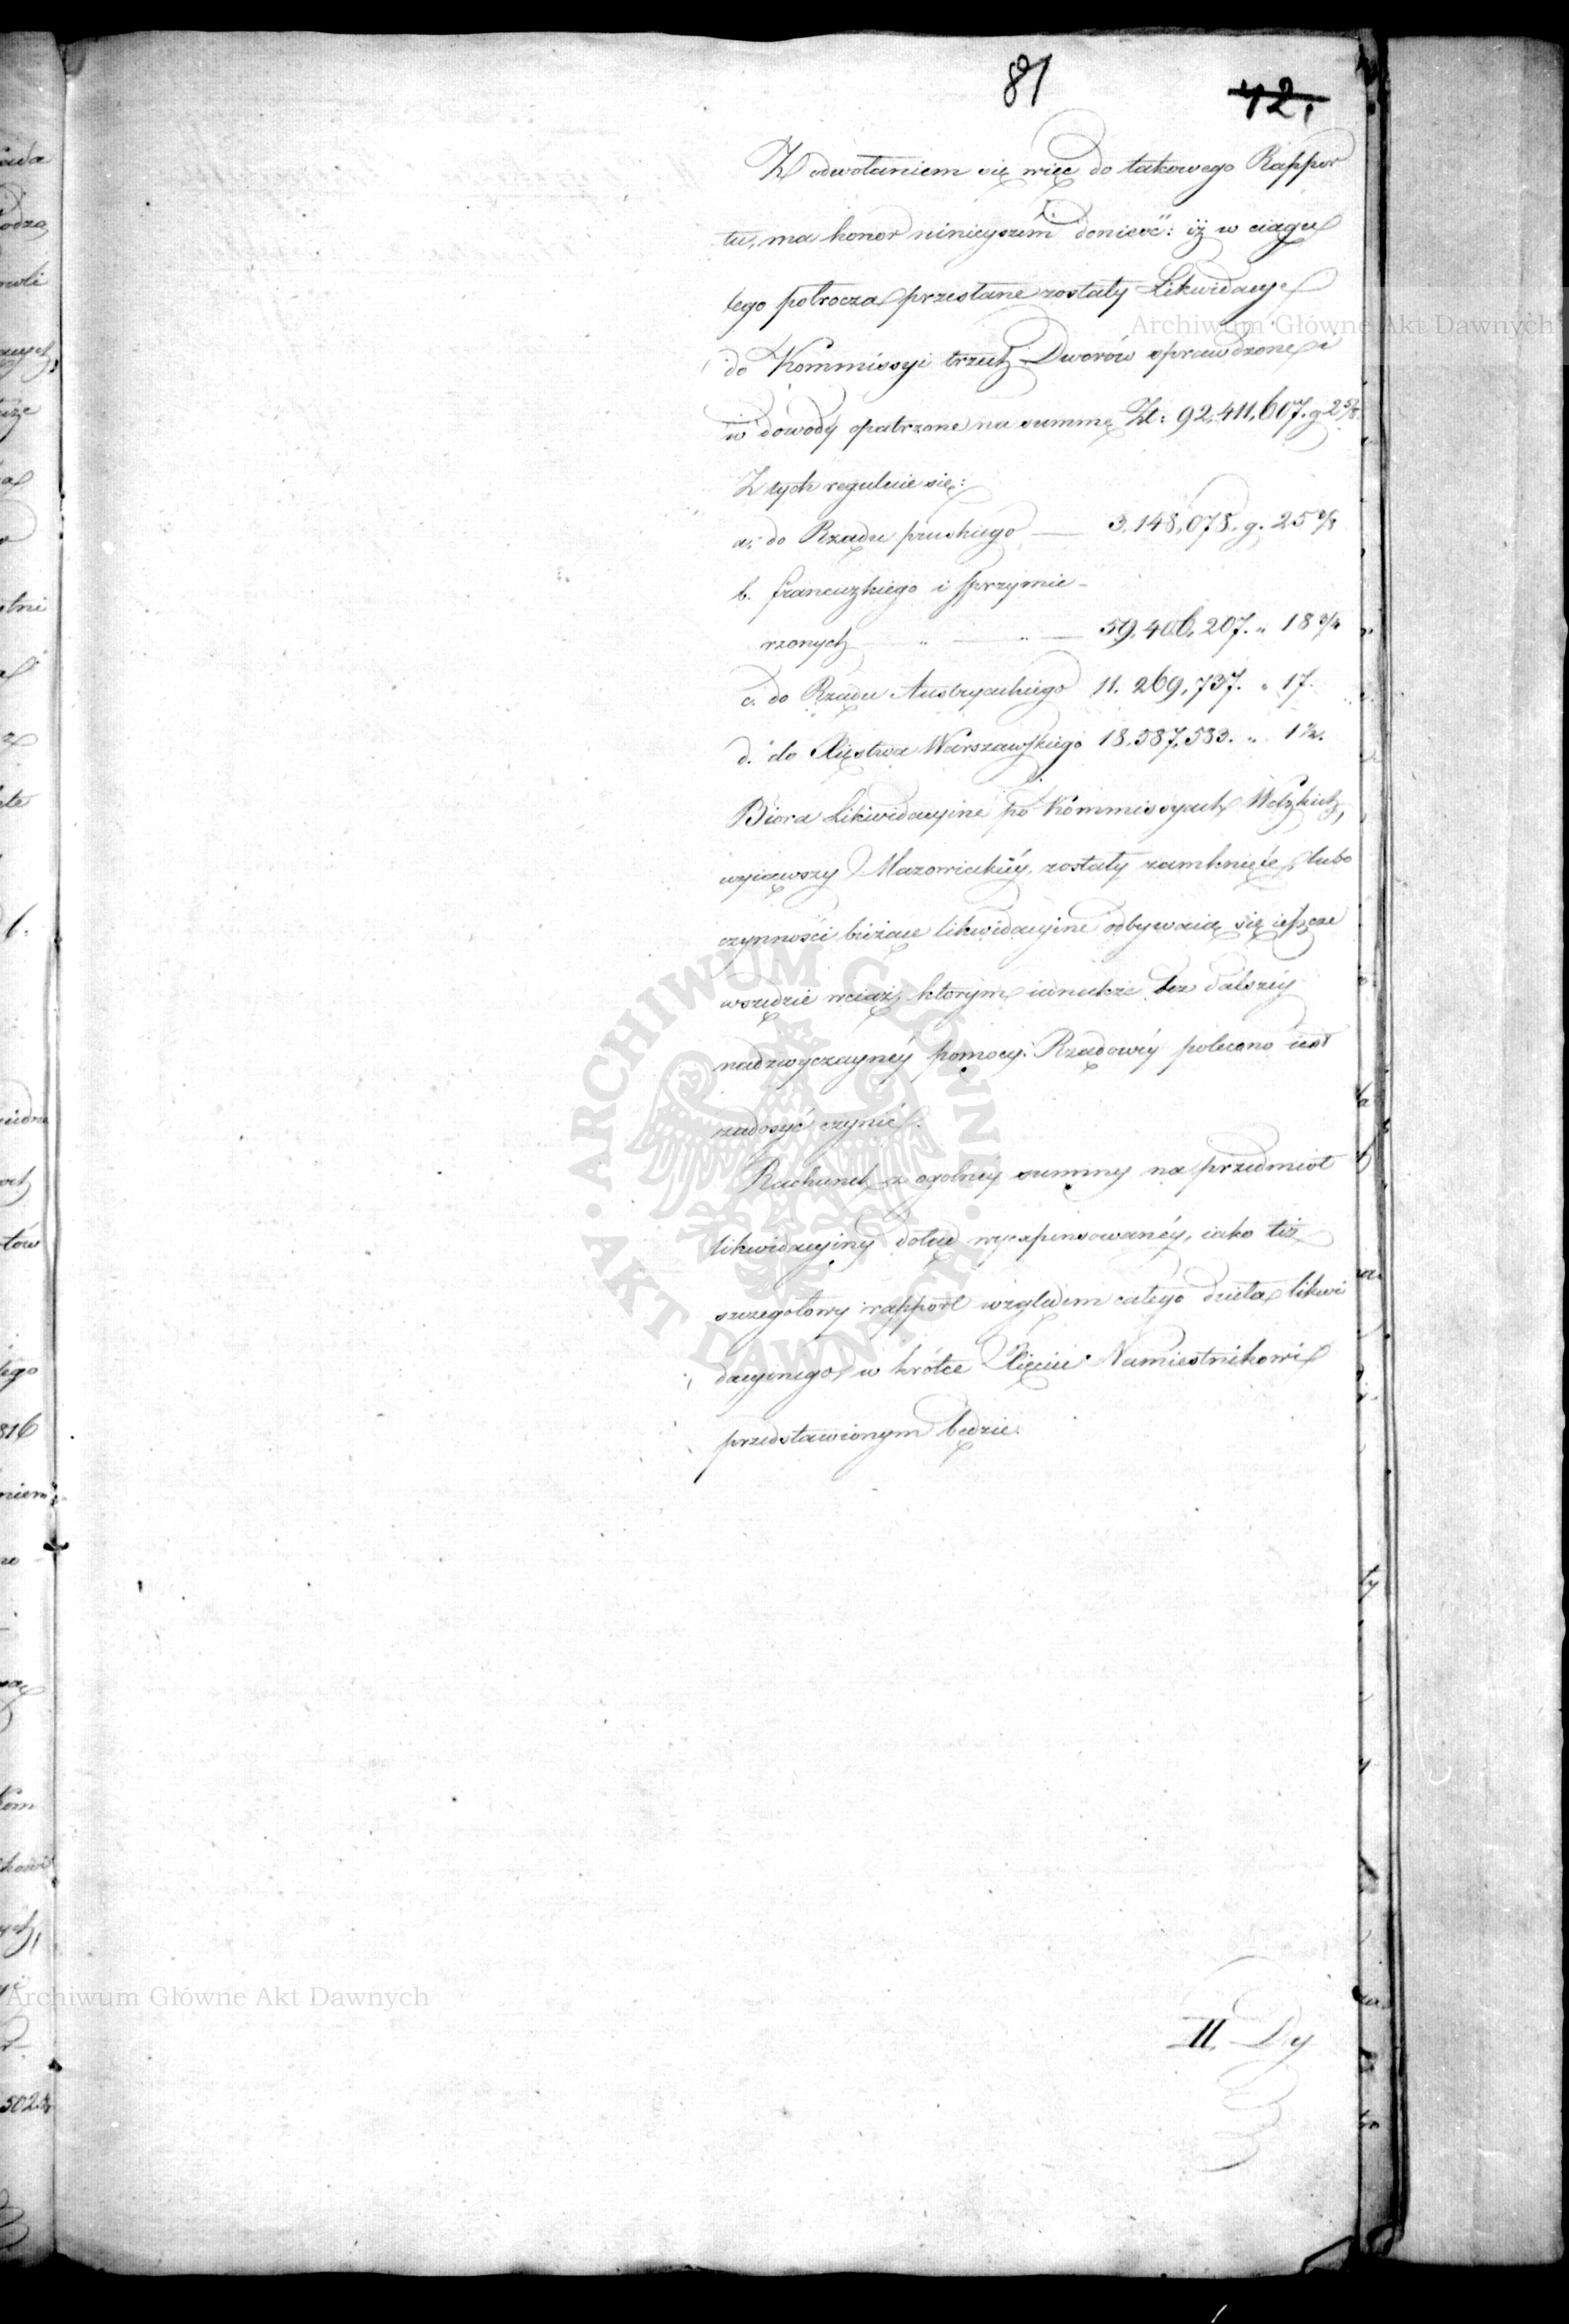 81
42.
Z odwołaniem się więc do takowego Rappor
tu, ma honor ninieyszém donieść: iż w ciągu
tego połrocza przesłane zostały Likwidacye
do Kommissyi trzech Dworów sprawdzone i
w dowody opatrzone na summę Zł: 92,411,607. g 2 5/8.
Z tych reguluie się:
a. do Rządu pruskiego — 3,148,078. g. 25 3/8
b. francuzkiego i sprzymie-
rzonych " — " — 59,406,207. " 18 3/4
c. do Rządu Austryackiego 11.269,737. " 17.
d. do Xięstwa Warszawskiego 18,587,583. " 1 1/2.
Biora Likwidacyine po Kommissyach Wdzkich,
wyiąwszy Mazowieckiéy, zostały zamknięte, lubo
czynności bieżące likwidacyine odbywaią się ieszcze
wszędzie wciąż, którym iednakże bez dalszéy
nadzwyczaynéy pomocy Rządowéy polecono iest
zadosyć czynić.
Rachunek z ogolnéy summy na przedmiot
likwidacyiny dotąd wyexpensowanéy, iako też
szczegołowy rapport względem całego dzieła likwi
dacyinego, w krótce Xięciu Namiestnikowi
przedstawionym będzie.
II. Dy
Archiwum Główne Akt Dawnych
Archiwum Główne Akt Dawnych
ARCHIWUM GŁÓWNE · AKT DAWNYCH ·